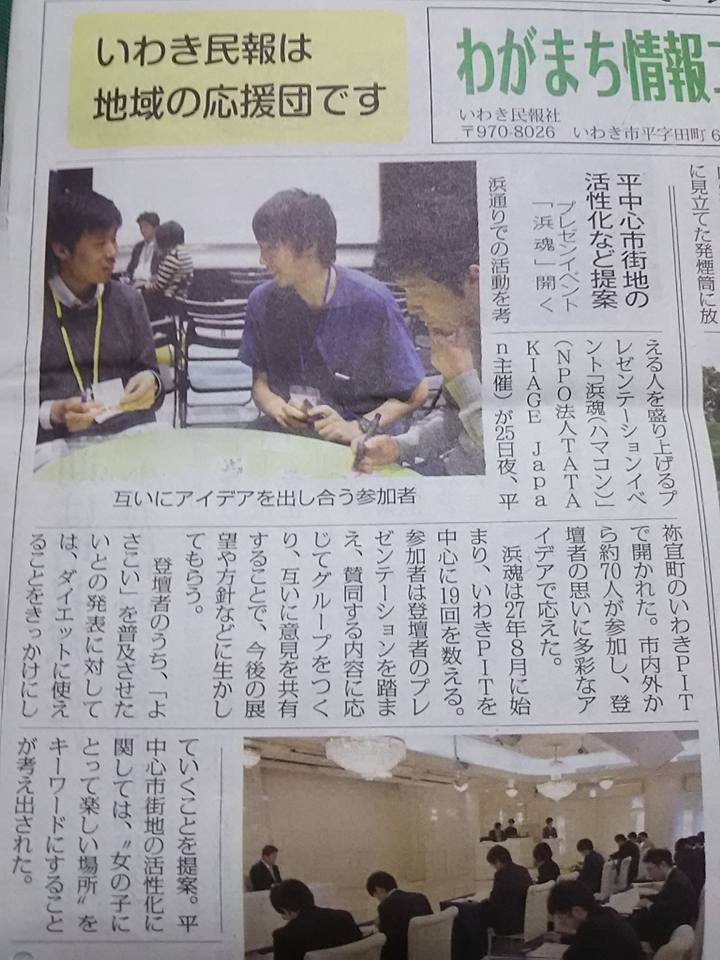 いわき民報は
地域の応援団です
わがまち情報
いわき民報社
〒970-8026 いわき市平字田町6
に見立てた発煙筒に放
平中心市街地の
活性化など提案
プレゼンイベント
「浜魂」開く
浜通りでの活動を考
える人を盛り上げるプ
レゼンテーションイベ
ント「浜魂(ハマコン)」
(NPO法人TATA
KIAGE Japa
n主催)が25日夜、平
祢宜町のいわきPIT
で開かれた。市内外か
ら約70人が参加し、登
壇者の思いに多彩なア
イデアで応えた。
浜魂は27年8月に始
まり、いわきPITを
中心に19回を数える。
参加者は登壇者のプレ
ゼンテーションを踏ま
え、賛同する内容に応
じてグループをつく
り、互いに意見を共有
することで、今後の展
望や方針などに生かし
てもらう。
登壇者のうち、「よ
さこい」を普及させた
いとの発表に対して
は、ダイエットに使え
ることをきっかけにし
ていくことを提案。平
中心市街地の活性化に
関しては、〝女の子に
とって楽しい場所〟を
キーワードにすること
が考え出された。
互いにアイデアを出し合う参加者